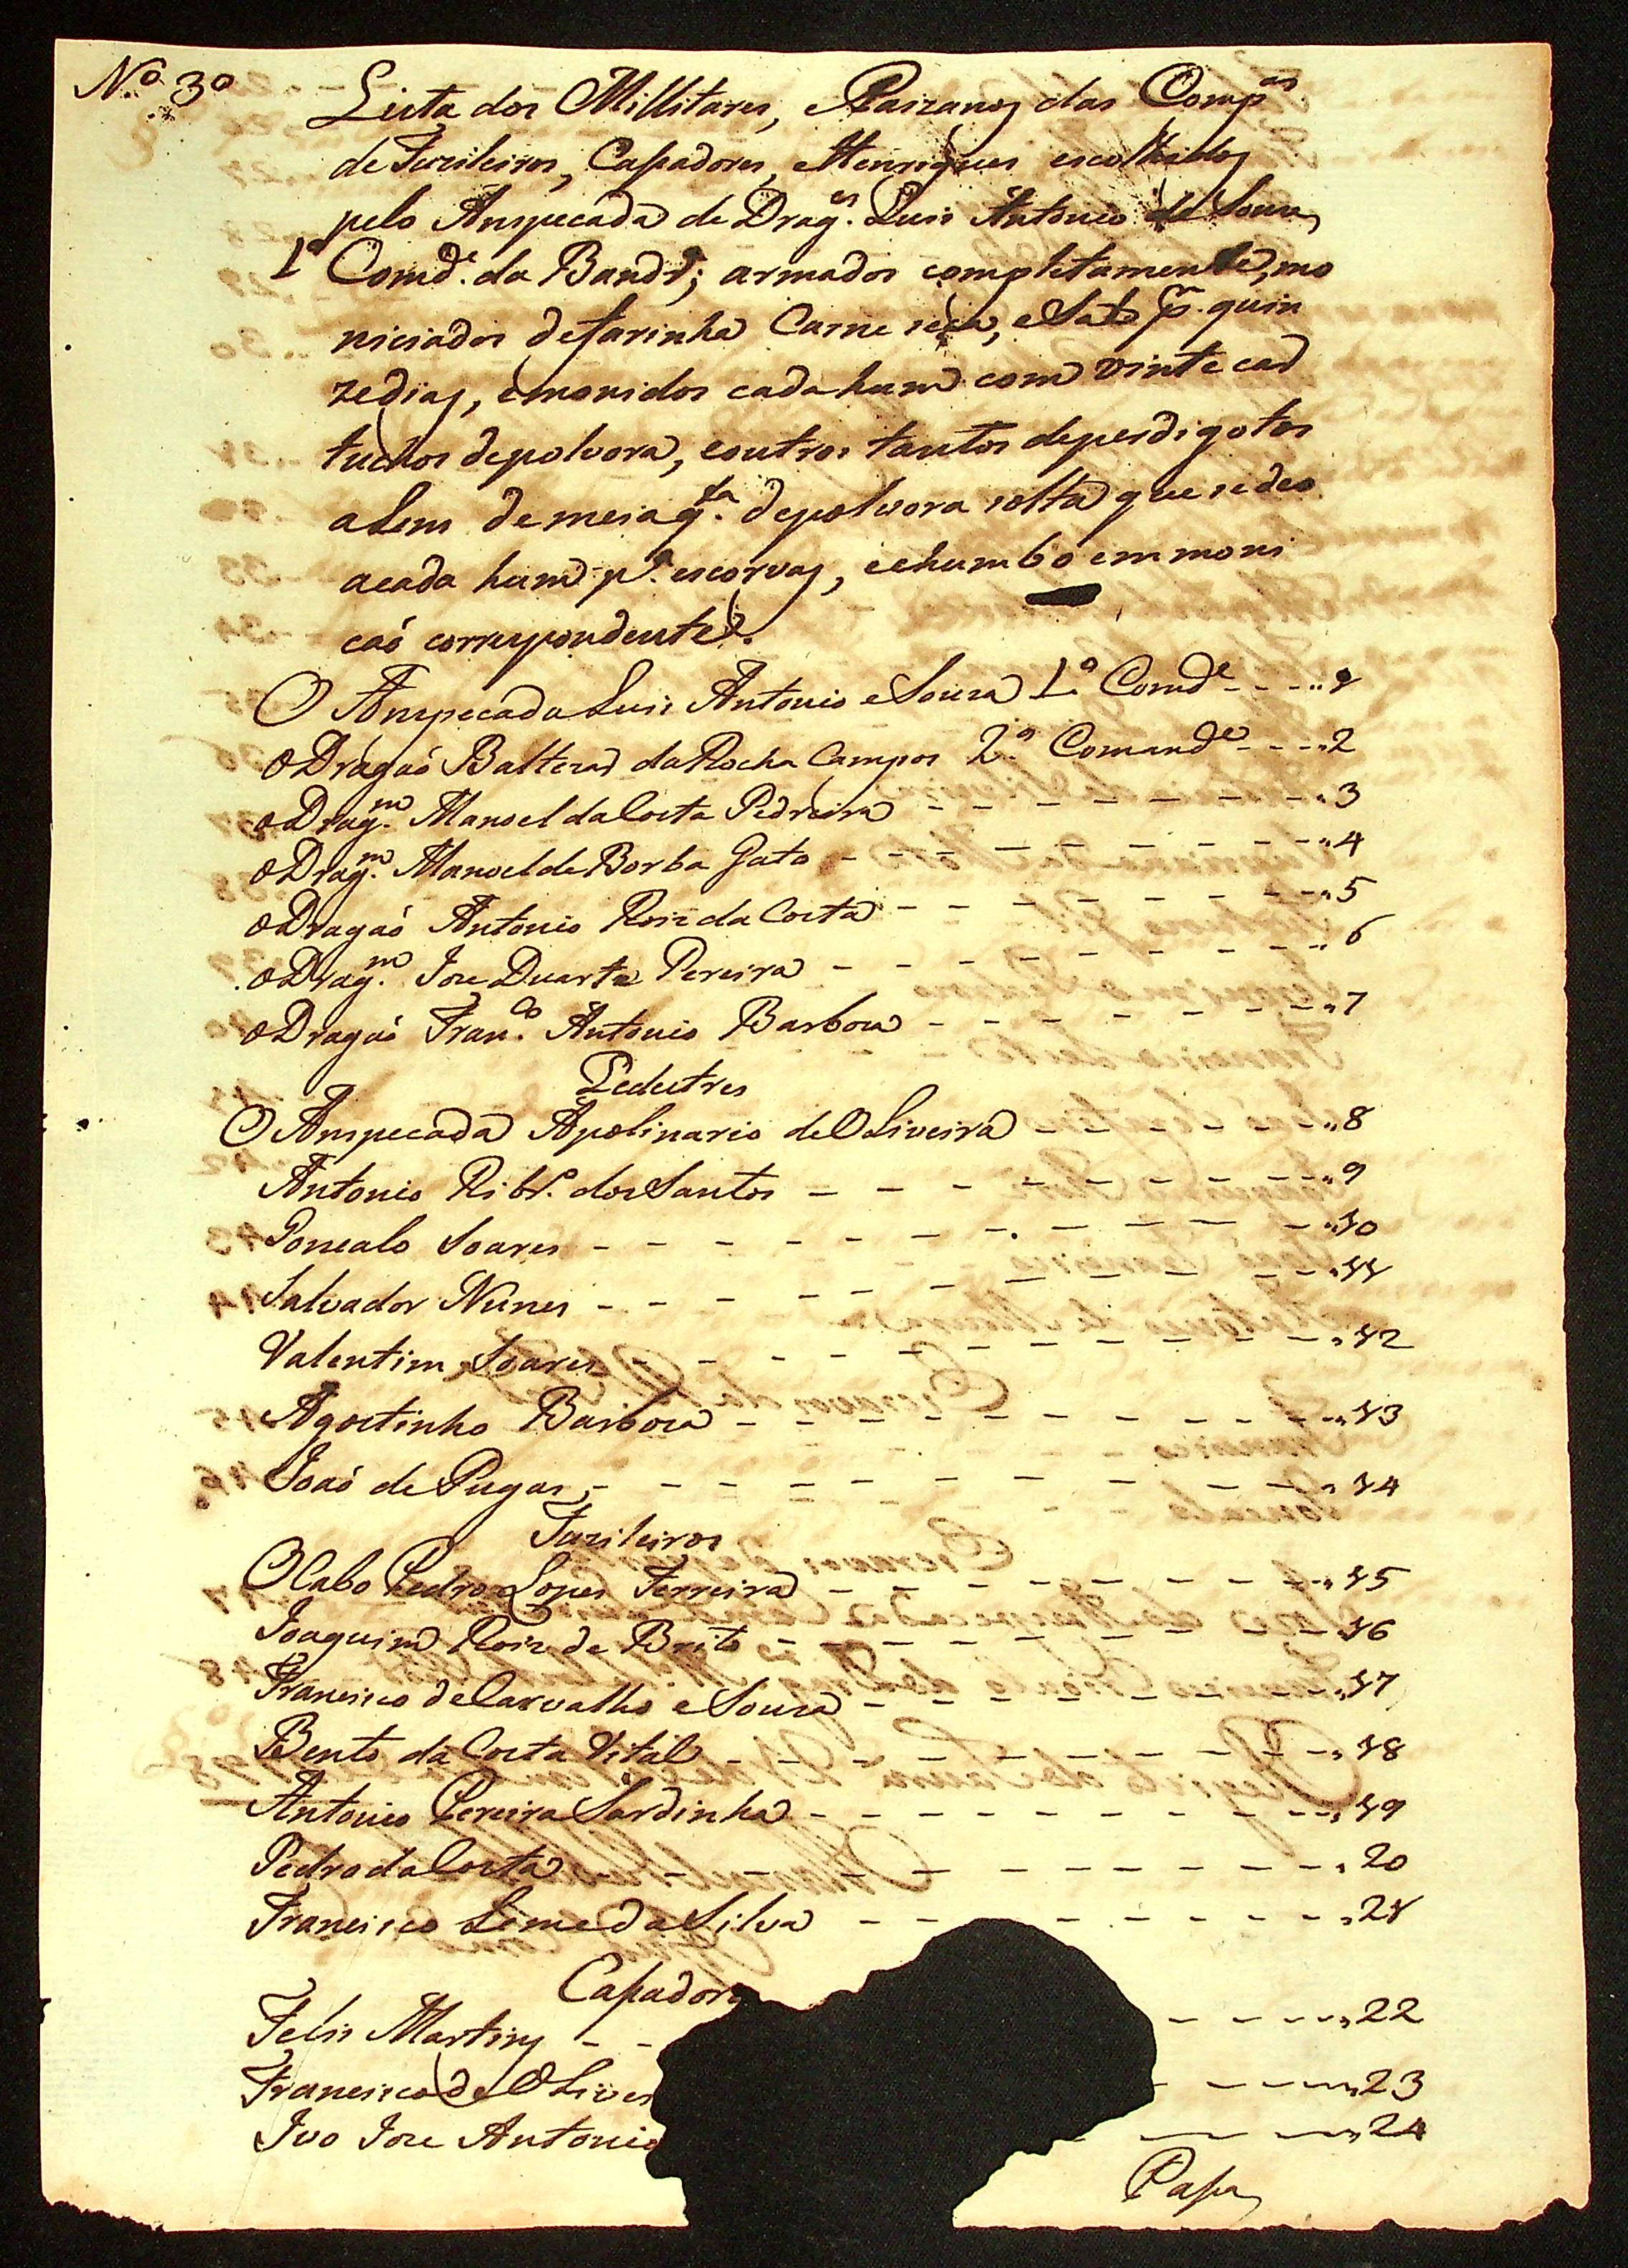 Nº 3º
Lista dos Millitares, e Paizanos das Comp.as
de Fuzileiros, Cassadores, e Henriques escolhidos
pelo Anspecada de Drag.es Luis Antonio de Souza
1º Comd.e da Bandr.a; armados completamente, mo
niciados de farinha Carne seca, e Sal p.r quin
ze dias, e monidos cada hum com vinte car
tuchos de polvora, e outros tantos de perdigotos
alem de meia q.ta de polvora solta que se deo
acada hum p.a escorvas, e chumbo em moni
caó correspondente.
O Anspecada Luis Antonio e Souza 1.º Comd.e - - - - 1
O Dragaó Baltezar da Rocha Campos 2.º Comand.e - - - - 2
O Drag.m Manoel da Costa Pedreira - - - - - - - - 3
O Drag.m Manoel de Borba Gato - - - - - - - - - 4
O Dragaó Antonio Roiz da Costa - - - - - - - - - 5
O Drag.m Joze Duarte Pereira - - - - - - - - - 6
O Dragaó Fran.co Antonio Barboza - - - - - - - - 7
Pedestres
O Anspecada Apolinario de Oliveira - - - - - - - 8
Antonio Ribr.º dos Santos - - - - - - - - - 9
Goncalo Soares - - - - - - - - - - - 10
Salvador Nunes - - - - - - - - - - - 11
Valentim Soares - - - - - - - - - - - 12
Agostinho Barboza - - - - - - - - - - 13
Joaó de Pugas - - - - - - - - - - - 14
Fuzileiros
O Cabo Pedro Lopes Ferreira - - - - - - - - - 15
Joaquim Roiz de Brito - - - - - - - - - - 16
Francisco de Carvalho e Souza - - - - - - - - 17
Bento da Costa Vital - - - - - - - - - - 18
Antonio Pereira Sardinha - - - - - - - - - 19
Pedro da Costa - - - - - - - - - - - 20
Francisco Leme da Silva - - - - - - - - - 21
Cassadore
Felis Martins - - - - - - 22
Francisco de Oliver - - - - 23
Ivo Joze Antonio - - - - 24
Passa